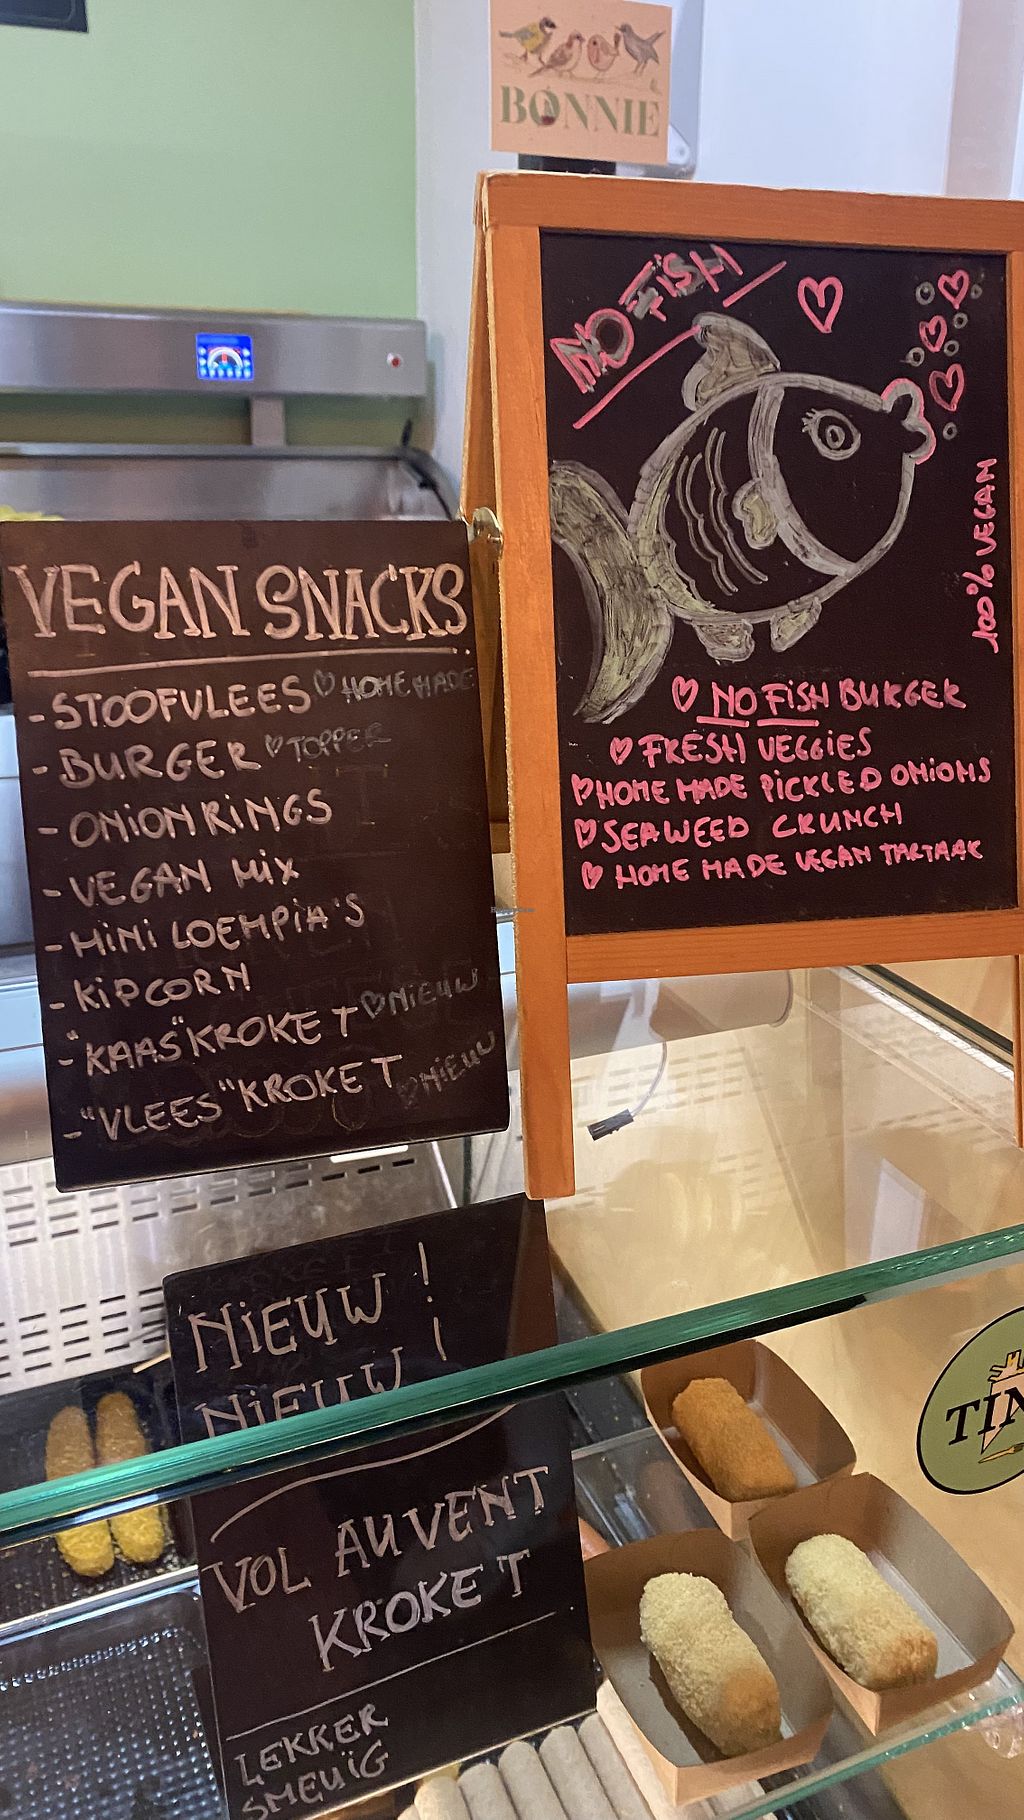 BONNIE
NO FISH
100% VEGAN
♡ NO FISH BURGER
♡ FRESH VEGGIES
♡ HOME MADE PICKLED ONIONS
♡ SEAWEED CRUNCH
♡ HOME MADE VEGAN TARTAAR
VEGAN SNACKS
- STOOFVLEES ♡ HOMEMADE
- BURGER ♡ TOPPER
- ONION RINGS
- VEGAN MIX
- MINI LOEMPIA'S
- KIPCORN
- "KAAS" KROKET ♡ NIEUW
- "VLEES" KROKET ♡ NIEUW
NIEUW!
NIEUW!
VOL AU VENT
KROKET
LEKKER
SMEUÏG